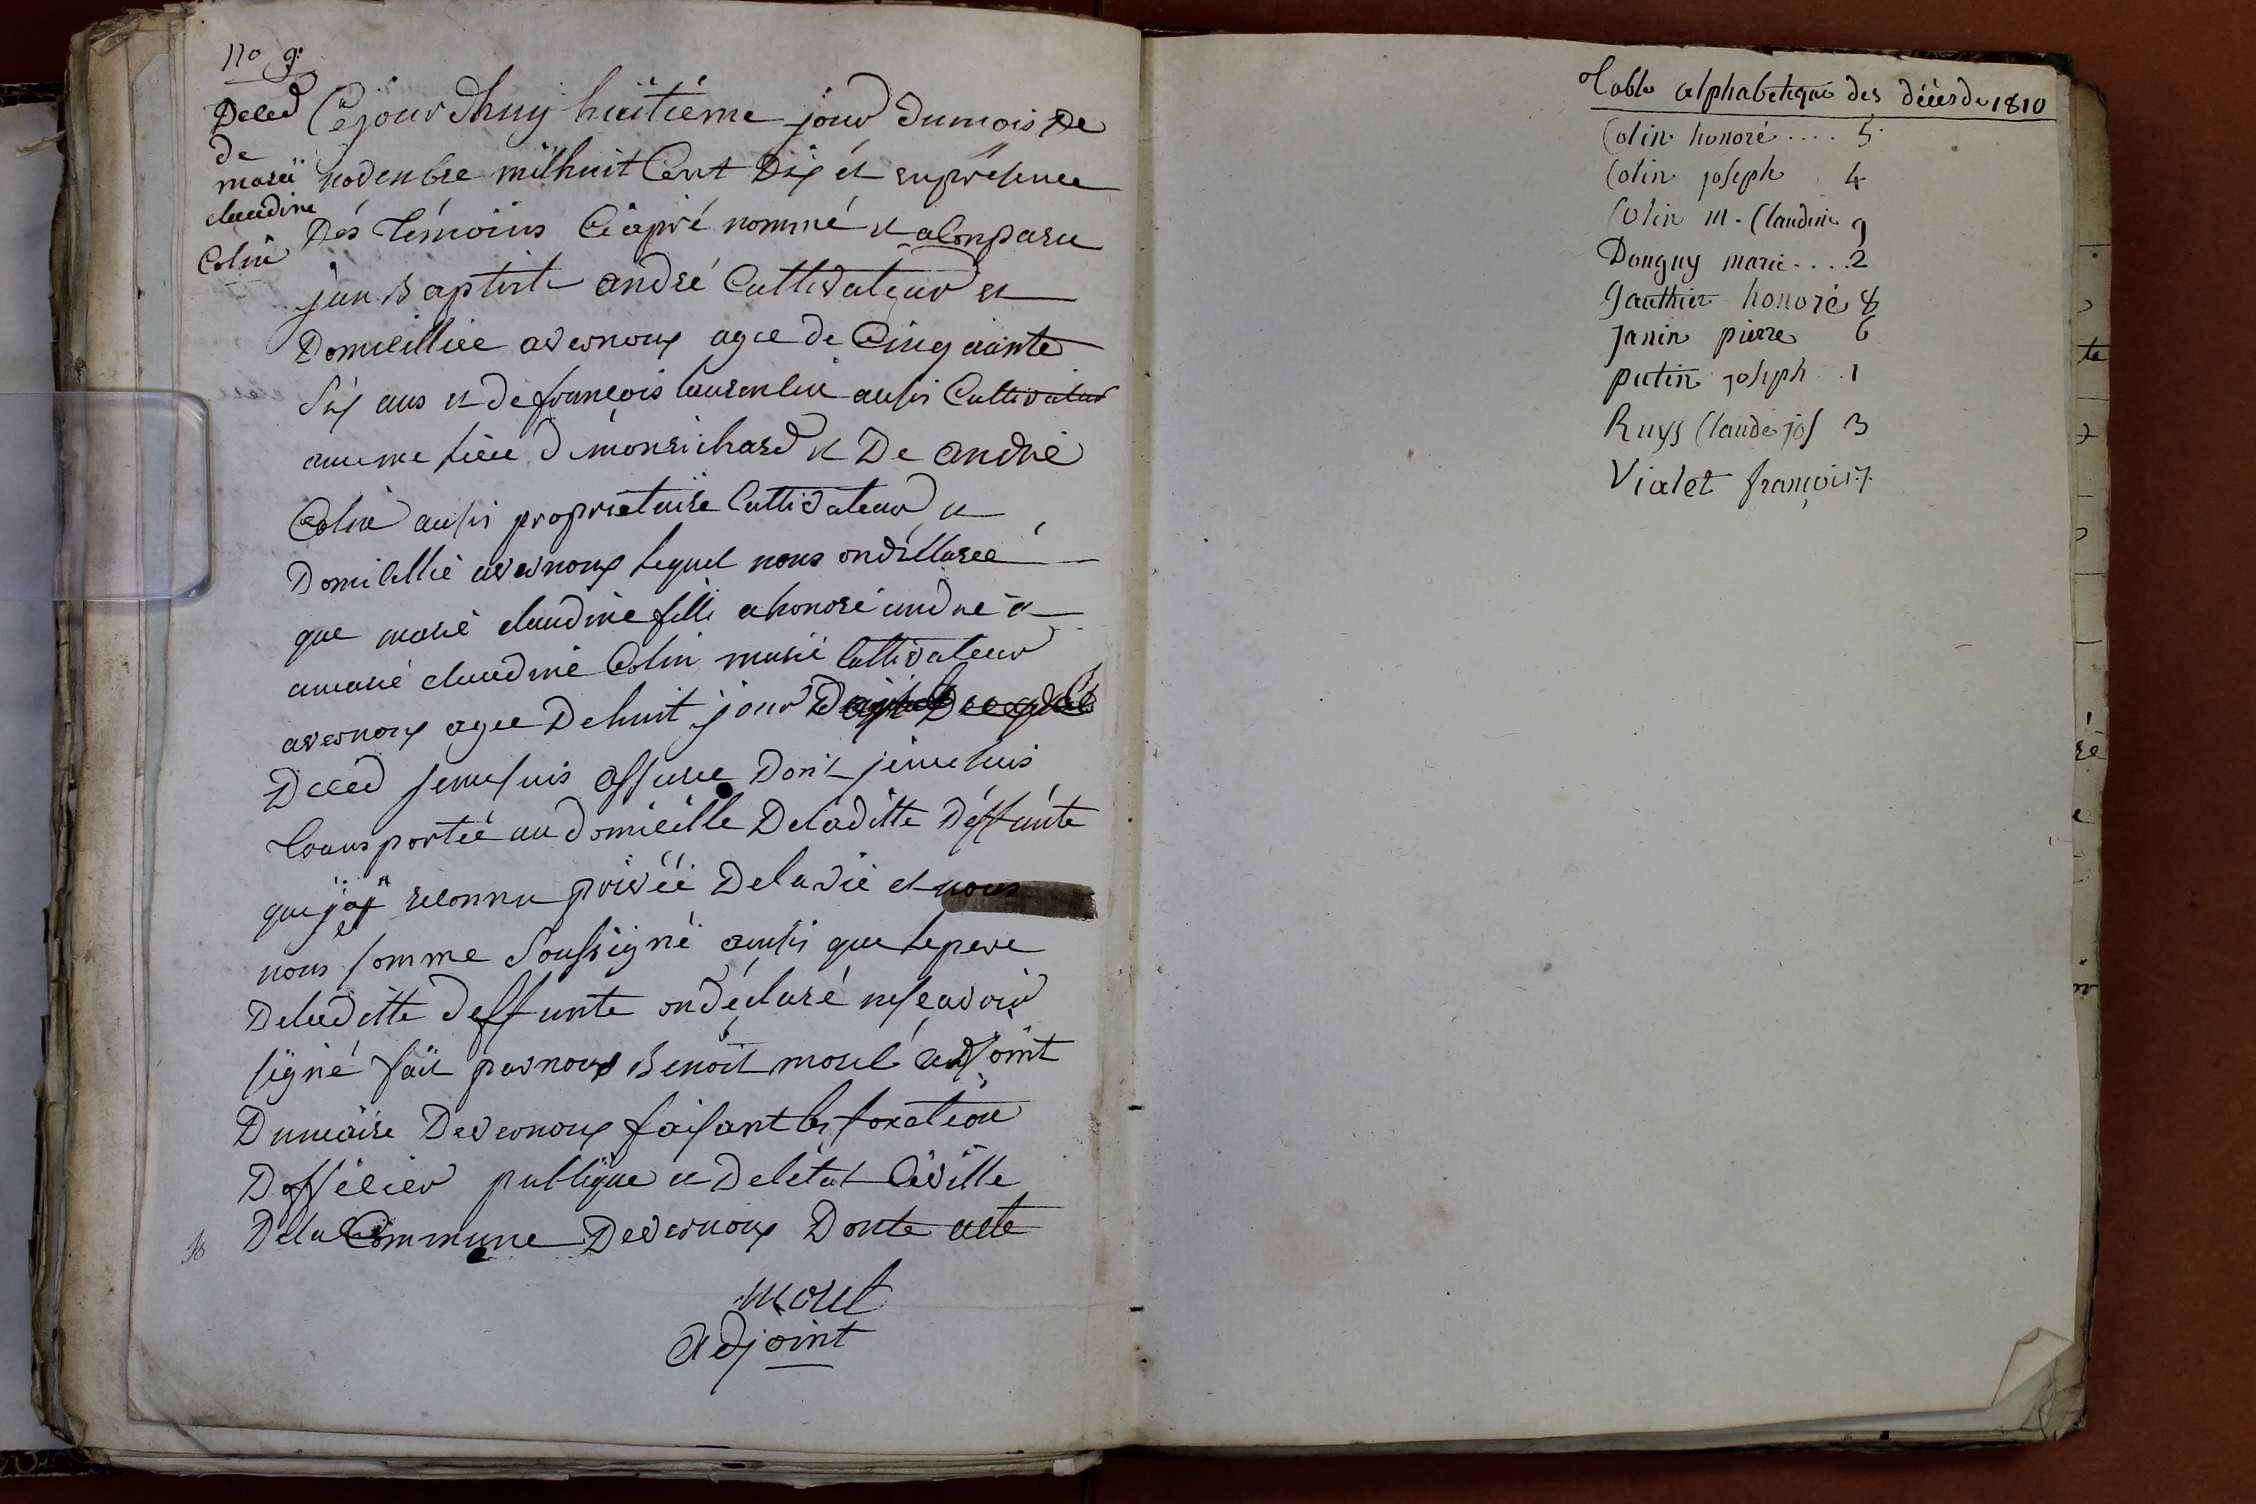 no 9.
Deced
de
marié
claudine
Colin
Cejour dhuy huitiéme jour dumois De
novenbre milhuit Cent Dix et enprésence
Dés témoins Ciapré nommé et aConparu
jan Baptiste andré Cultivateur et
Domicilliee avernoux agee de Cinquante
Six ans et de françois laurenlin ausis Cultivateur
aumeme liéu D monrichard et De andré
Colin ausis proprietaire Cultivateur et
Domicillié avernoux lequel nous ondéllaree
que marié claudine fille a honoré andre et
amarié claudine Colin marié Cultivateur
avernoux agee Dehuit jour
Deced jemesuis assuree Dont jemesuis
transportéé au domicille Deladitte Déffunte
que j'aÿ reconnu privéé Delavie et nous
et
nous somme Soussigné ausis que lepere
Deladitte deffunte ondéclaré nesçavoir
signé fait parnous Benoit morel adjoint
Dumaire Devernoux faisant les fonction
Dofficier publique et Delétat Civille
Dela Commune Devernoux Donte acte
morel
adjoint
Table alphabetique des décés de 1810
Colin honoré .... 5
Colin joseph . 4
Colin m. Claudine 9
Donguy marie .... 2
Gauthier honoré 8
Janin pierre 6
putin joseph . 1
Ruys Claude jos 3
Vialet françois . 7.